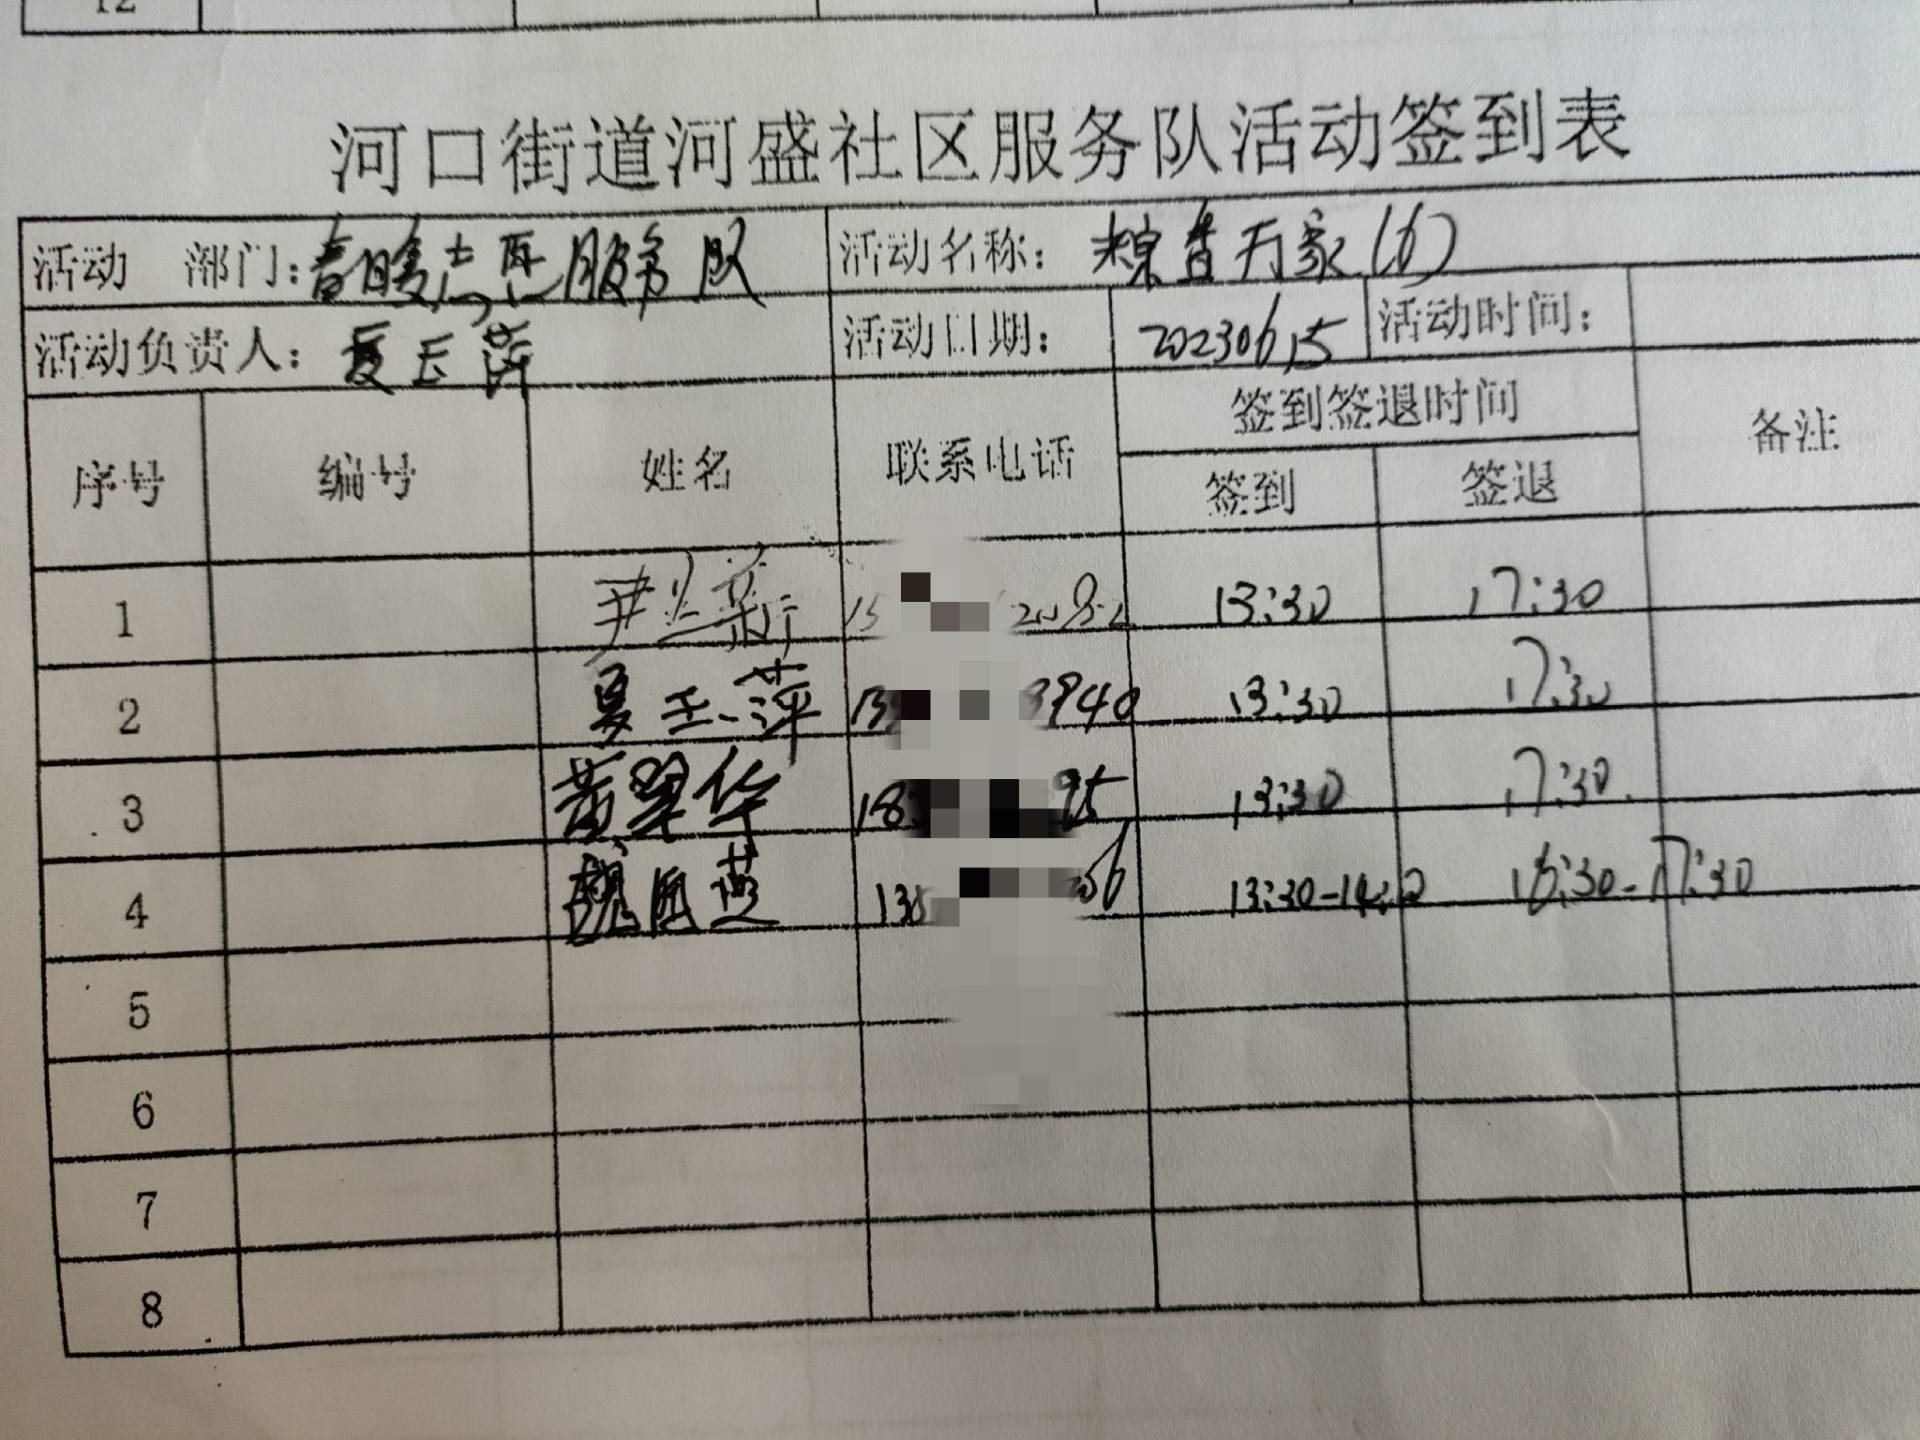 12
河口街道河盛社区服务队活动签到表
活动 部门：春暖志愿服务队 活动名称： 粽香万家(6)
活动负责人：夏玉萍 活动日期： 20230615 活动时间：
序号 编号 姓名 联系电话 签到签退时间 备注
签到 签退
1 尹兰新 15 2082 13:30 17:30
2 夏玉萍 13 3940 13:30 17:30
3 黄翠华 18 95 13:30 17:30
4 魏 13 13:30-14: 16:30-17:30
5
6
7
8